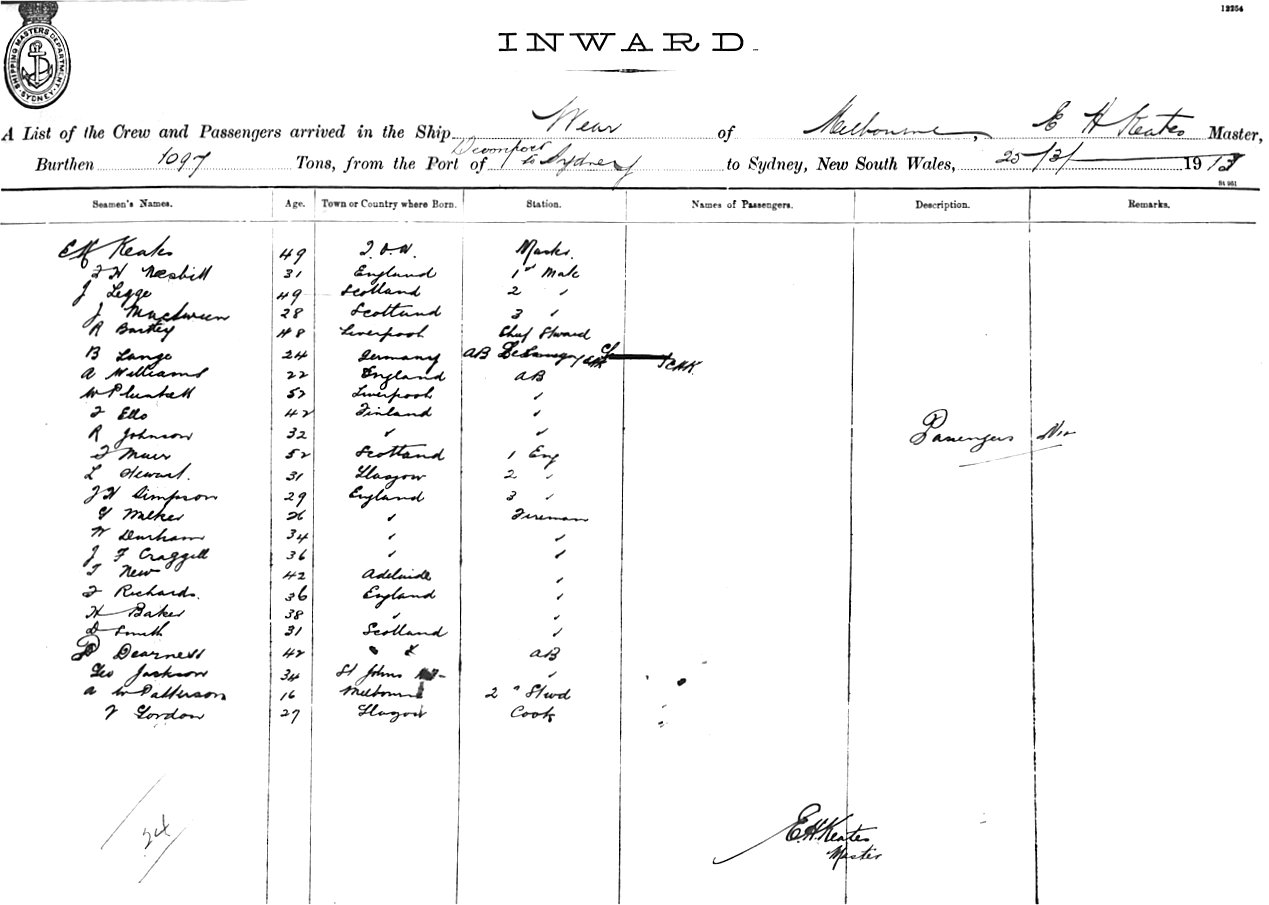 12254
SHIPPING MASTERS DEPARTMENT. SYDNEY.
INWARD.
A List of the Crew and Passengers arrived in the Ship Wear of Melbourne, E H Keates Master,
Burthen 1097 Tons, from the Port of Devonport to Sydney to Sydney, New South Wales, 25/3/ 1913
Seamen's Names. Age. Town or Country where Born. Station. Names of Passengers. Description. Remarks.
E H Keates 49 I.O.W. Master
F H Nesbitt 31 England 1st Mate
J Legge 49 Scotland 2 "
J 28 Scotland 3 "
R 48 Liverpool Chief Steward
B Lange 24 Germany AB
A Williams 22 England AB
W Plunkett 52 Liverpool "
F Ello 42 Finland "
R Johnson 32 " "
Passengers Nil
T Muir 52 Scotland 1 Eng
L Stewart. 31 Glasgow 2 "
J H Simpson 29 England 3 "
G Walker 26 " Fireman
W Durham 34 " "
J F Craggill 36 " "
T New 42 Adelaide "
F Richards. 36 England "
H Baker 38 " "
D Smith 31 Scotland "
P Dearness 42 " AB
Geo Jackson 34 St Johns "
A W Patterson 16 Melbourne 2 " Stwd
F Gordon 27 Glasgow Cook
24
E.H.Keates
Master